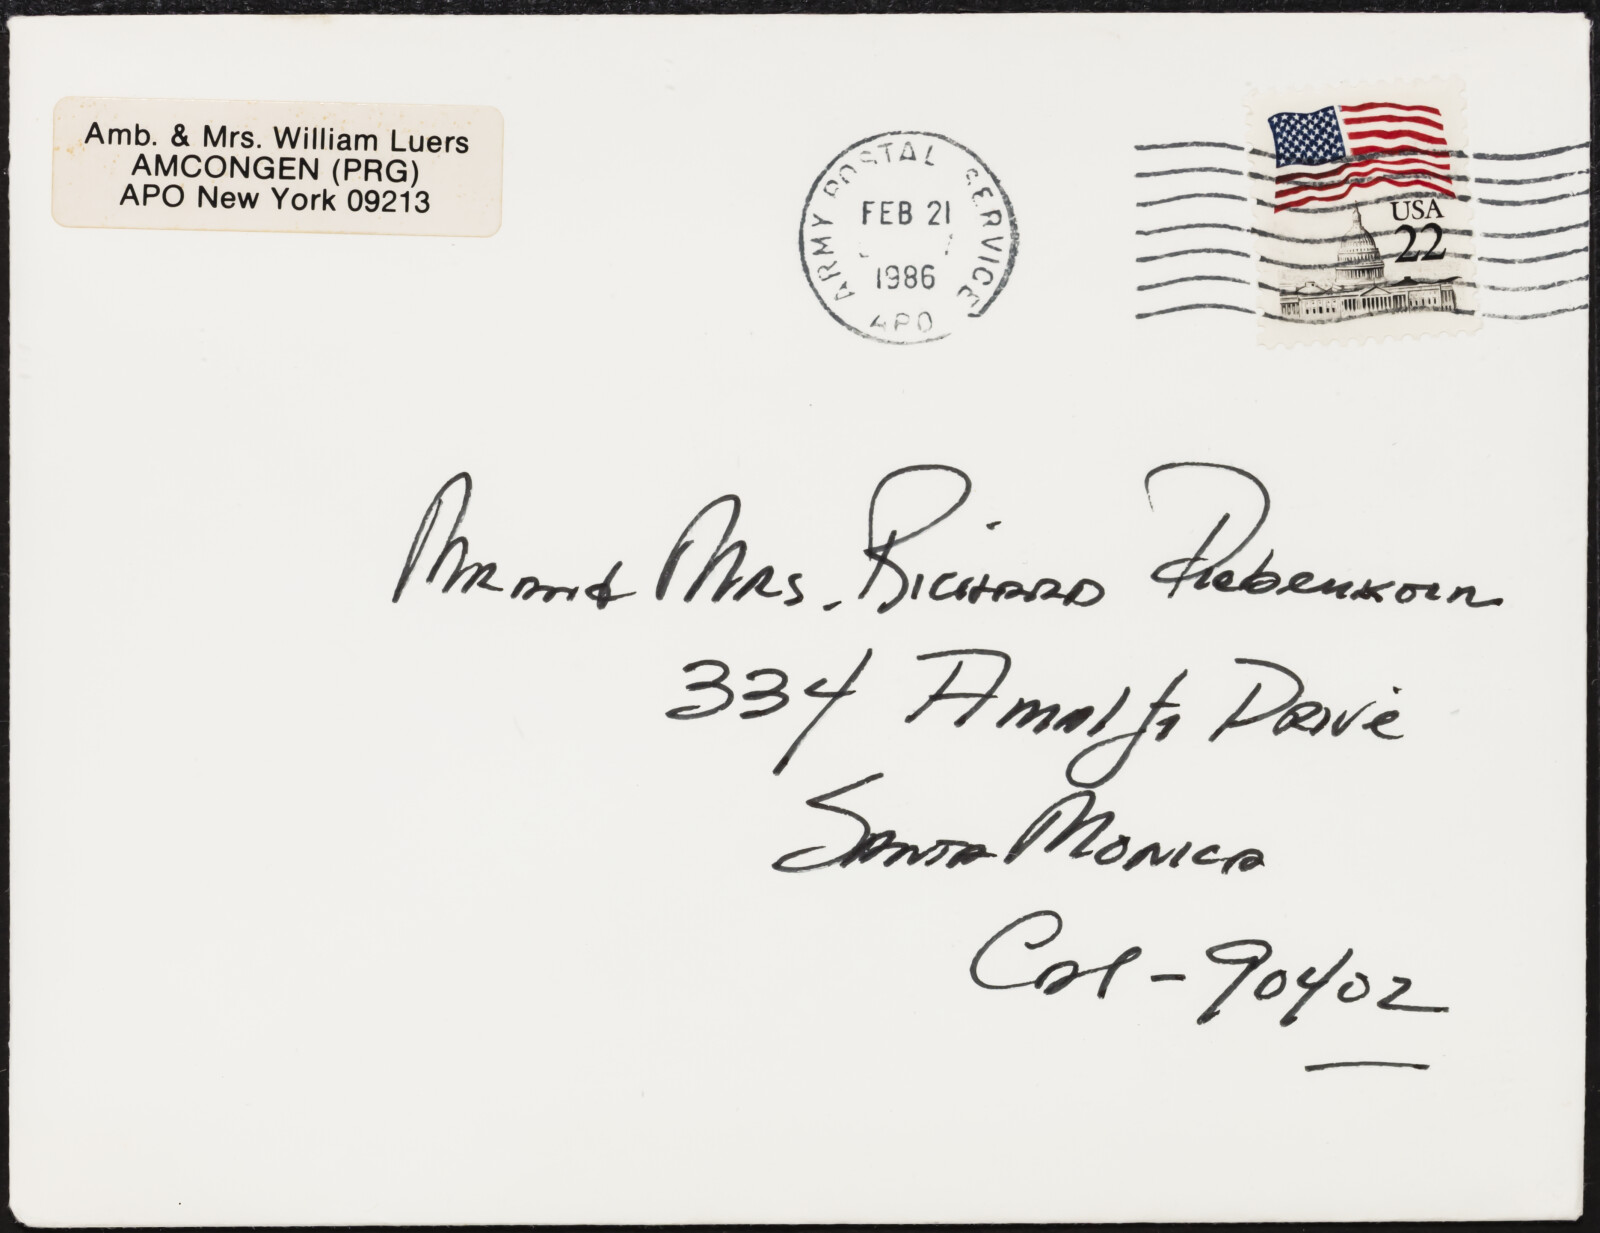 Amb. & Mrs. William Luers
AMCONGEN (PRG)
APO New York 09213
ARMY POSTAL SERVICE
FEB 21
1986
APO
USA
22
Mr and Mrs. Richard Diebenkorn
334 Amalfi Drive
Santa Monica
Cal - 90402